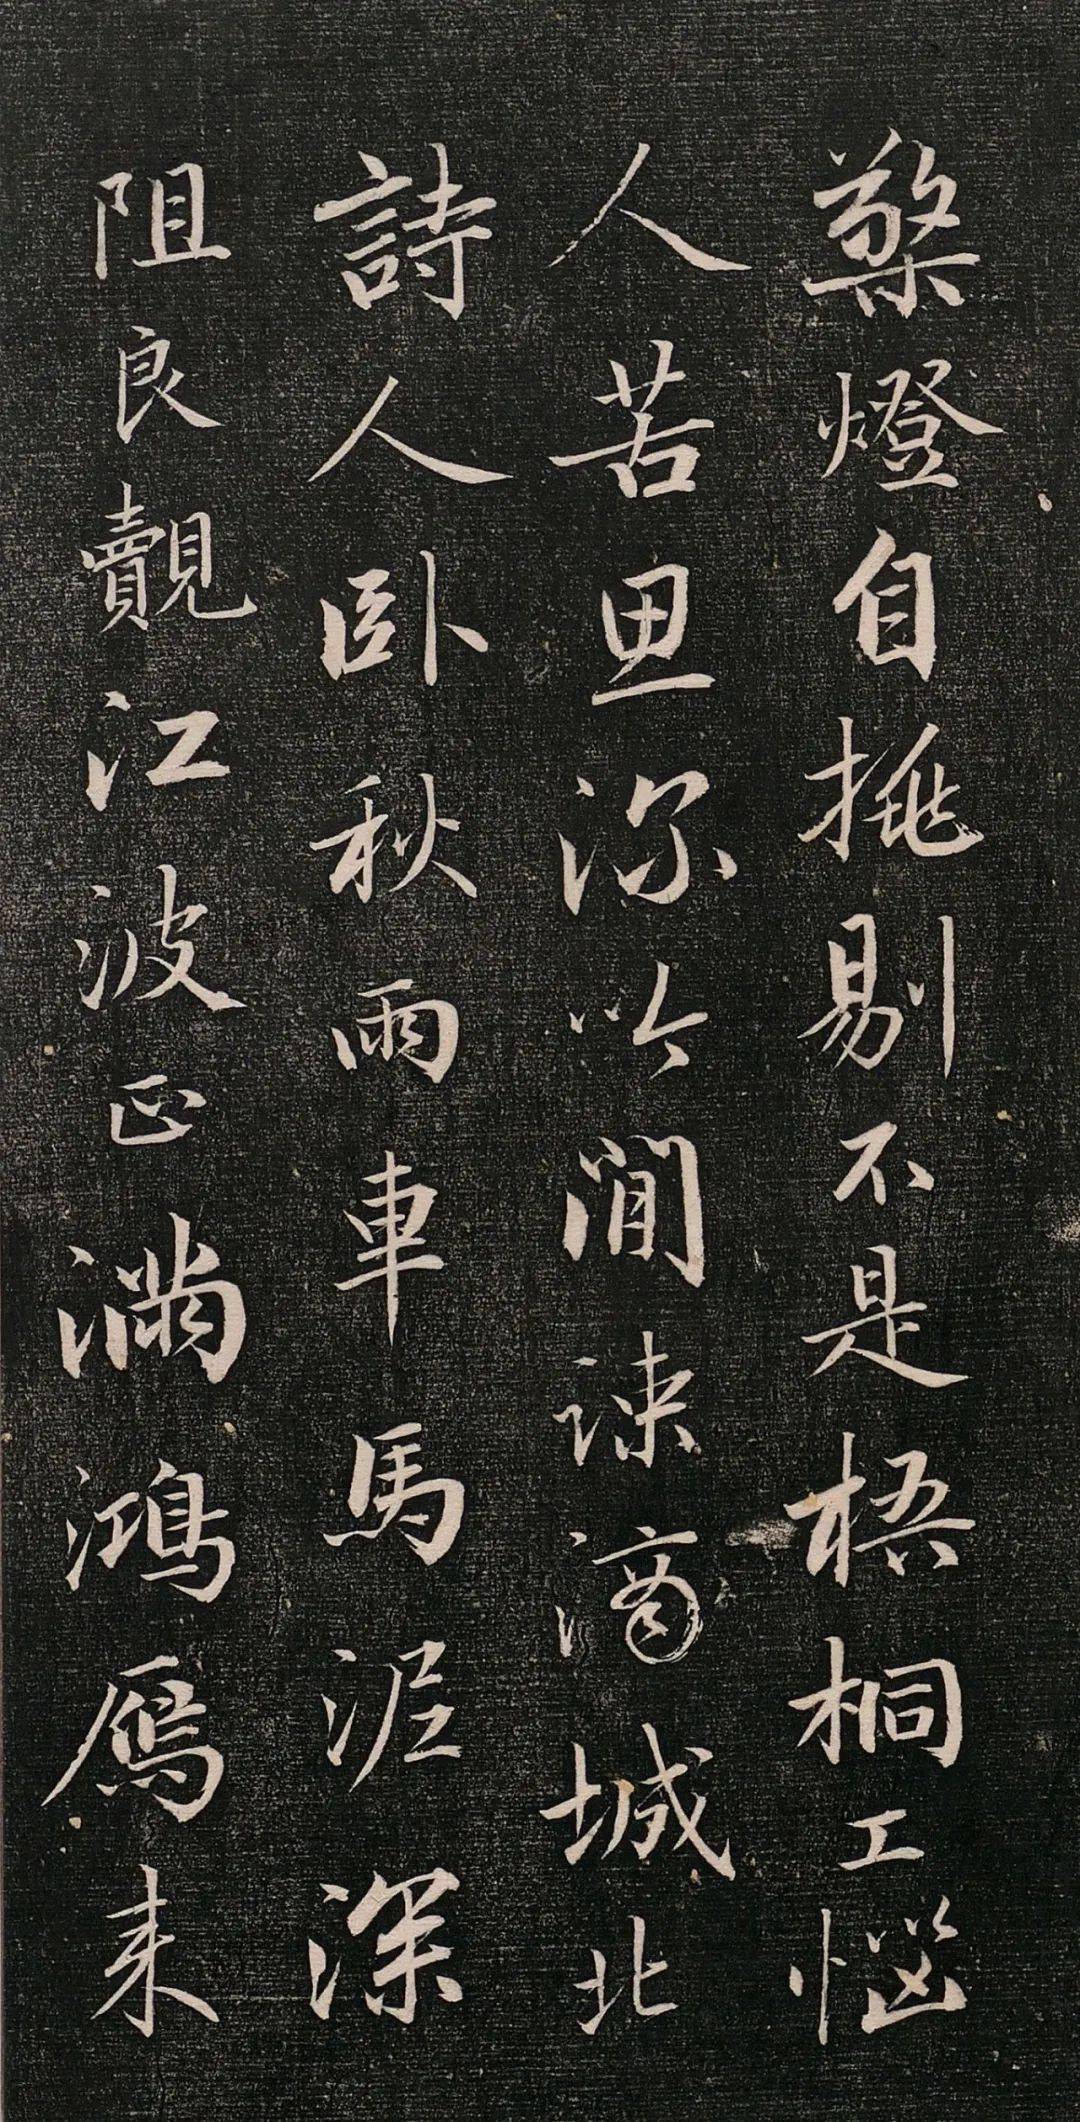 檠燈自挑剔不是梧桐工惱
人苦思深吟間疎滴城北
詩人臥秋雨車馬泥深
阻良覿江波正满鴻鴈来